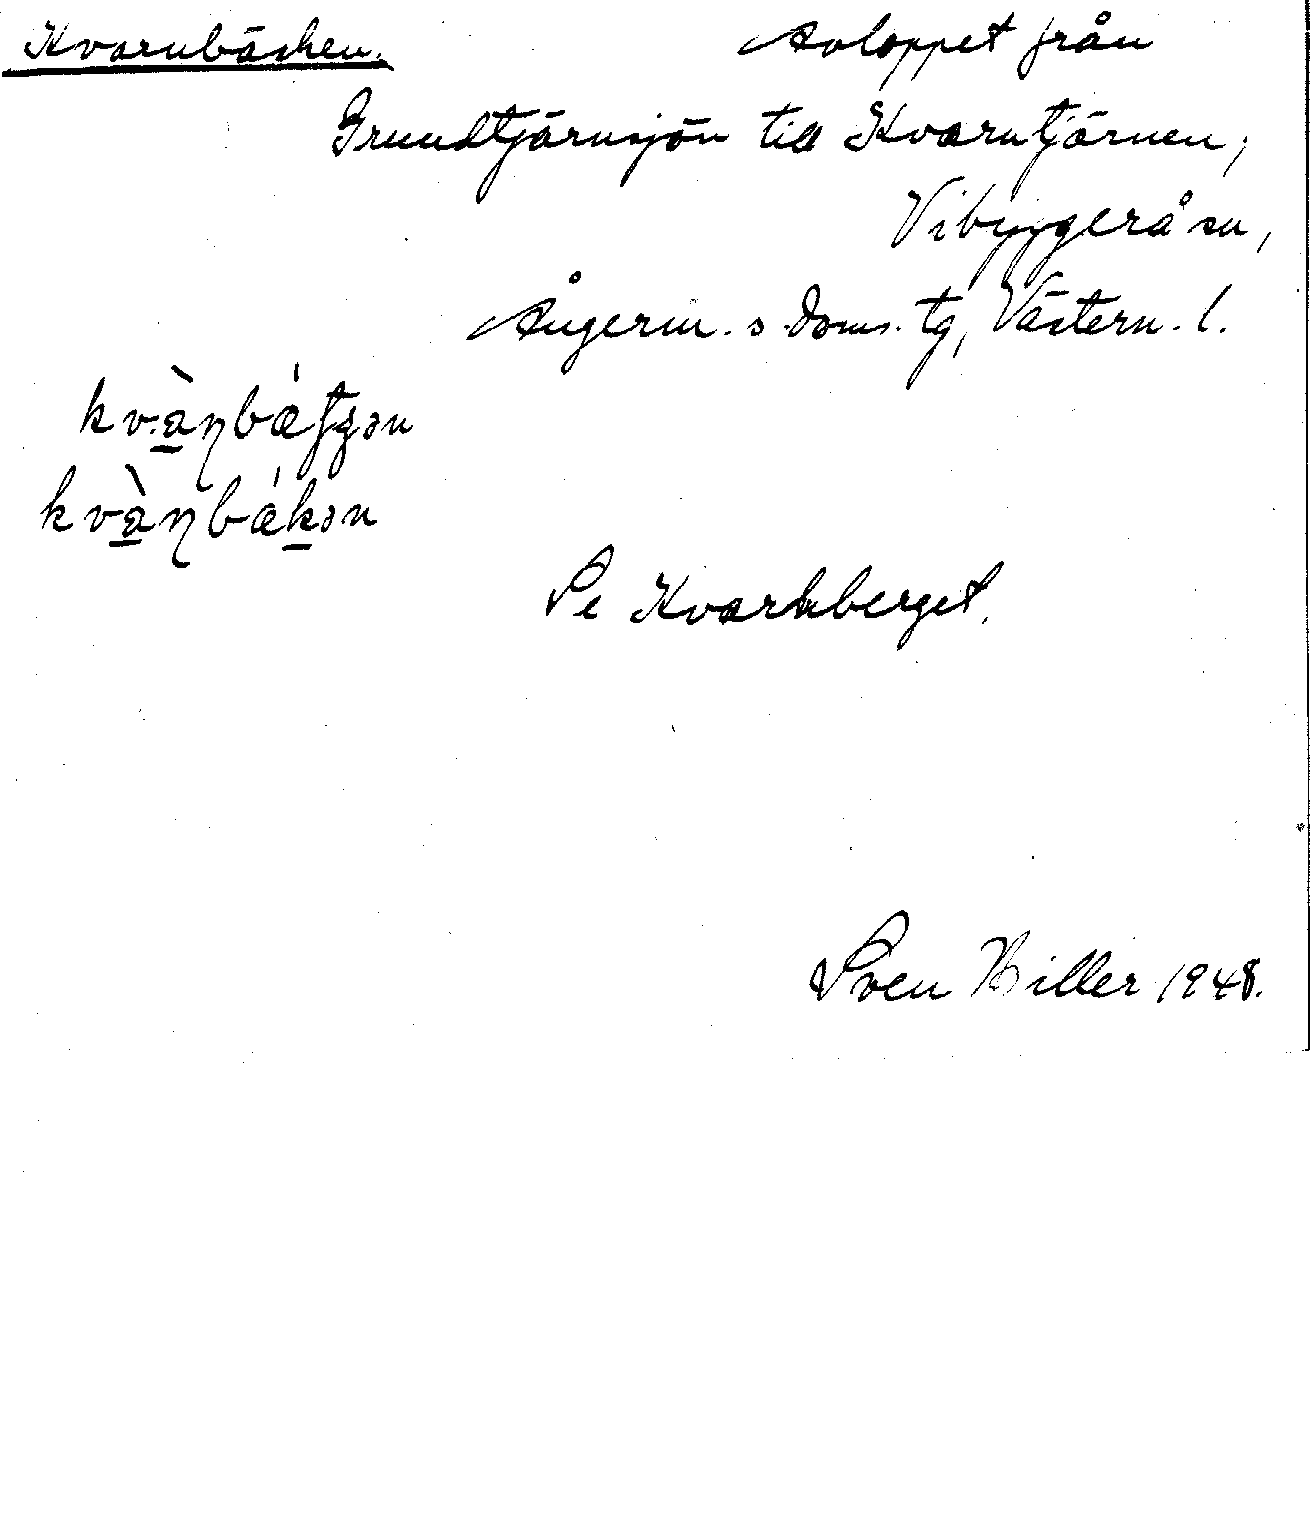 Kvarnbäcken. Avloppet från
Grundtjärnsjön till Kvarntjärnen,
Vibyggerå sn,
Ångerm. s. doms. tg, Västern. l.
kv.à̲ɳbǽʃʒən
kvà̲ɳbǽk̲ən
Se Kvarnberget.
Sven Hiller 1948.